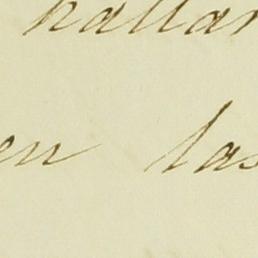 kallar
en las